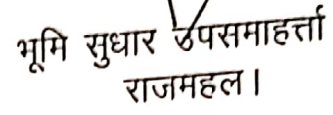 भूमि सुधार उपसमाहर्त्ता
राजमहल।